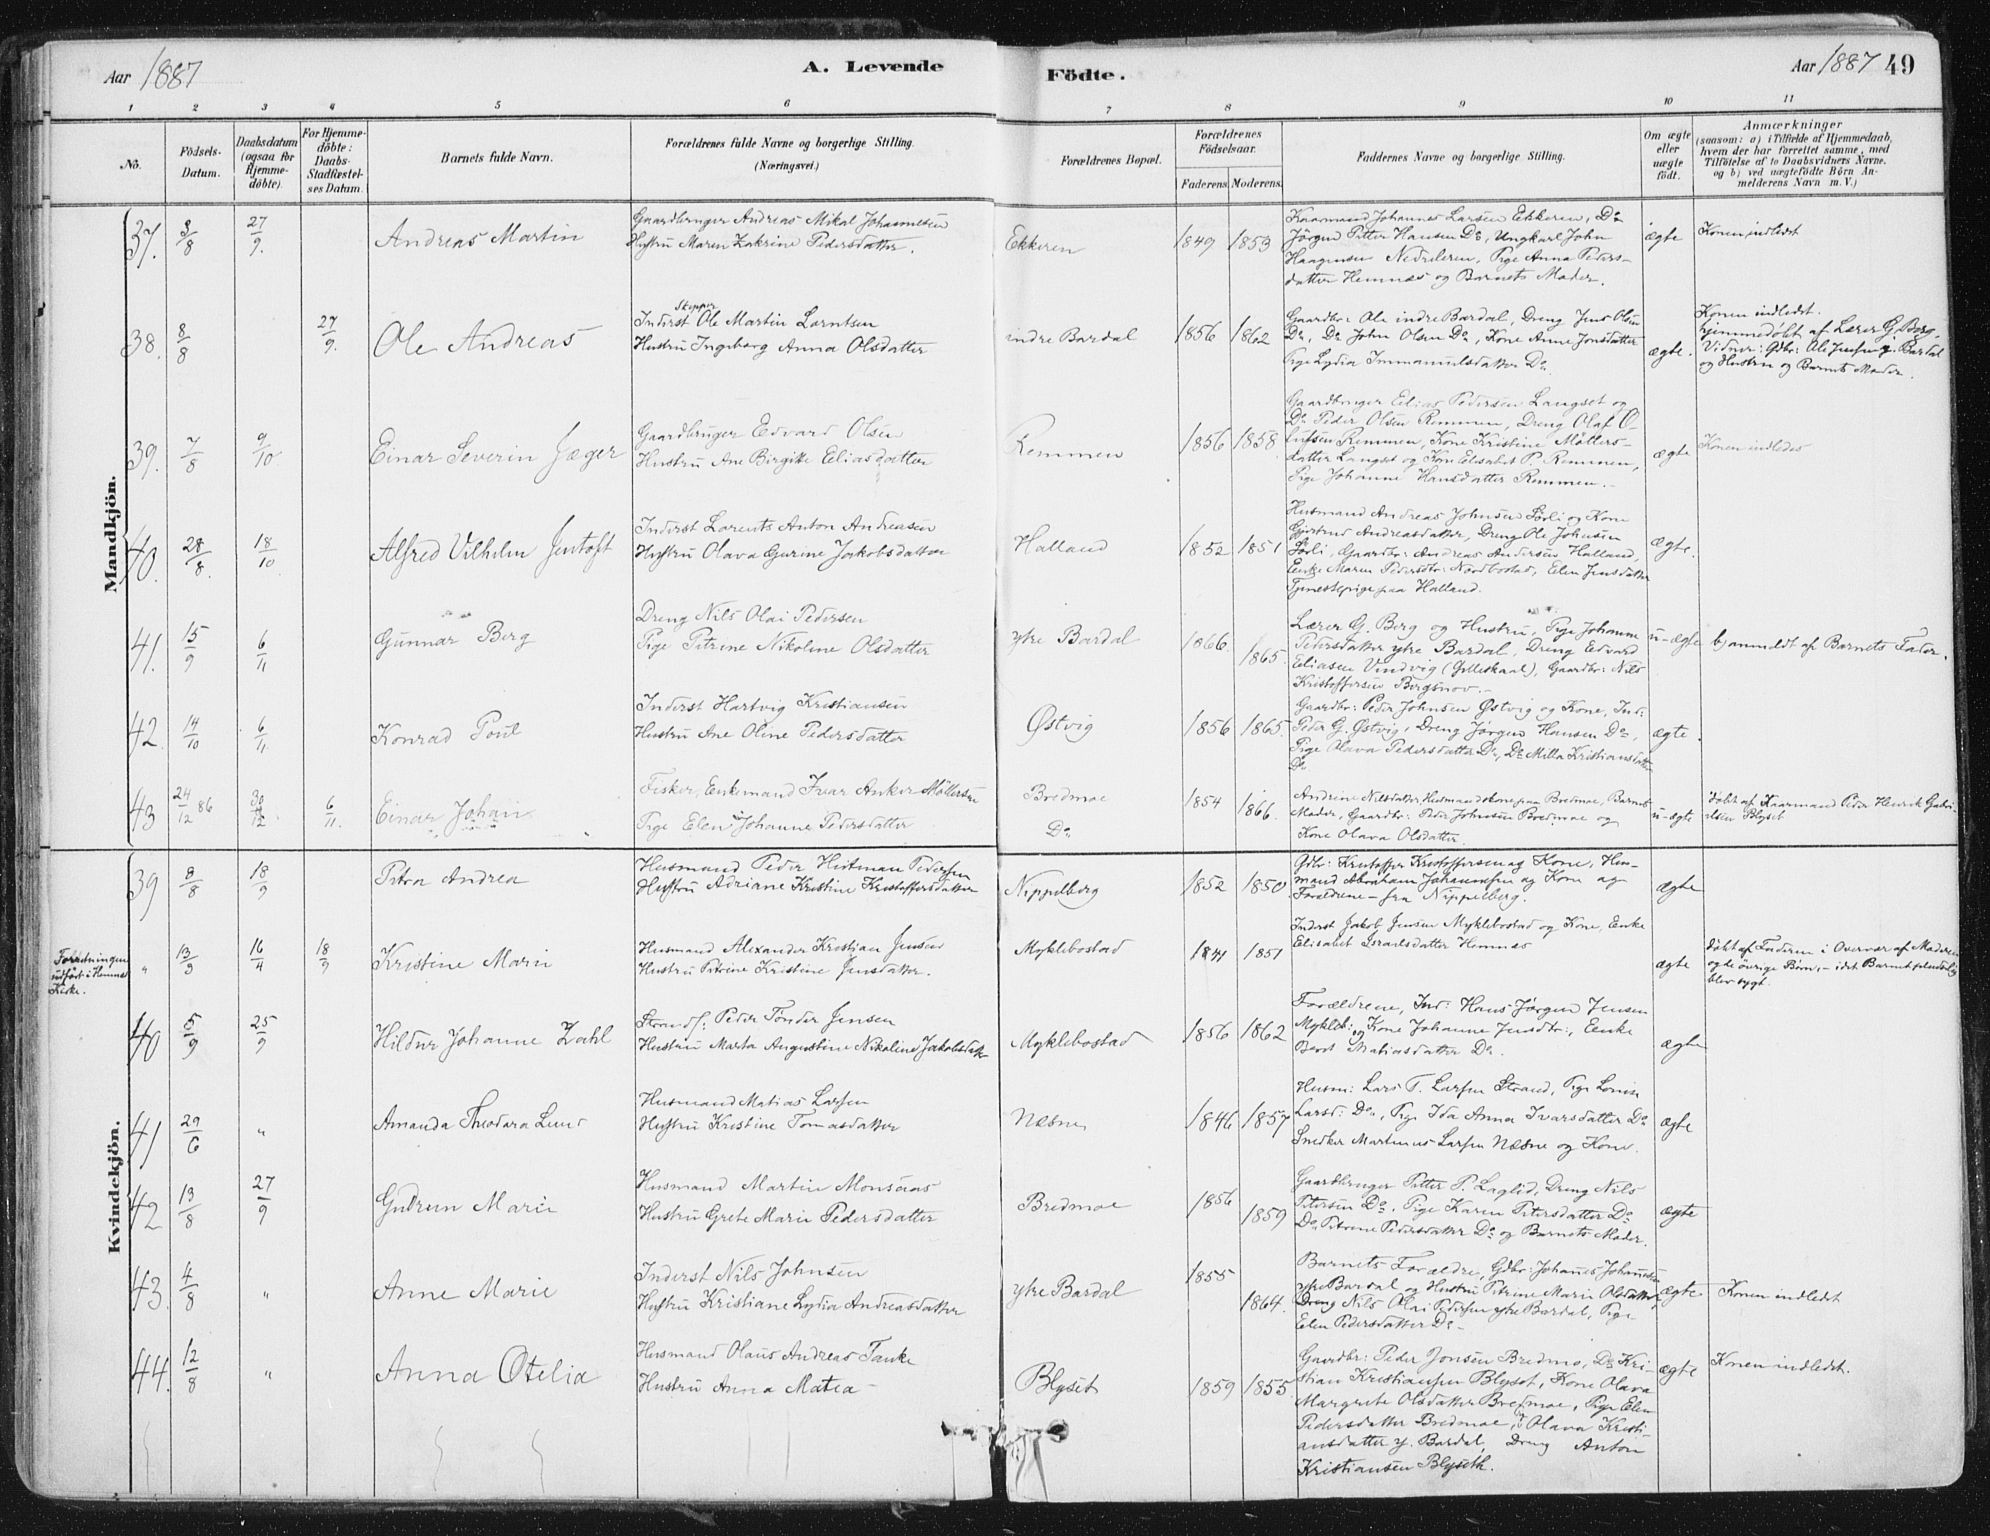 Aar 1887
A. Levende
Födte.
Aar 1887 49
1 2 3 4 5 6 7 8 9 10 11
No.
Födsels-Datum.
Daabsdatum (ogsaa for Hjemme-döbte).
For Hjemme-döbte: Daabs-Stadfæstel-ses Datum.
Barnets fulde Navn.
Forældrenes fulde Navne og borgerlige Stilling. (Næringsvei.)
Forældrenes Bopæl.
Forældrenes Födselsaar.
Faderens. Moderens.
Faddernes Navne og borgerlige Stilling.
Om ægte eller uægte födt.
Anmærkninger
(saasom: a) i Tilfælde af Hjemmedaab,
hvem der har forrettet samme, med
Tilföielse af to Daabsvidners Navne.
og b) ved uægtefödte Börn An-
melderens Navn m. V.)
Mandkjön.
37. 3/8 27/9. Andreas Martin
Gaardbruger Andreas Mikal Johannesen
Hustru Maren Zakrine Pedersdatter.
Ekkeren 1849 1853
Kaarmand Johannes Larsen Ekkeren, Do
Jörgen Petter Hansen Do, Ungkarl John
Haagensen Nedreleren, Pige Anna Peders-
datter Hemnæs og Barnets Moder.
ægte
Konen indledet
38. 8/8 27/9. Ole Andreas
Skipper
Inderst Ole Martin Larntsen
Hustru Ingeborg Anna Olsdatter
indre Bardal 1856 1862
Gaardbr: Ole indre Bardal, Dreng Jens Olsen
Do, Do John Olsen Do, Kone Anne Jonsdatter
Pige Lydia Immanuelsdatter Do.
ægte.
Konen indledet.
hjemmedøbt af Lærer G. Berg,
Vidner: Gdbr: Ole i. Bardal
og Hustru og Barnets Moder.
39. 7/8 9/10 Einar Severin Jæger
Gaardbruger Edvard Olsen
Hustru Ane Birgitte Eliasdatter
Remmen 1856 1858
Gaardbruger Elias Pedersen Langset og
Do Peder Olsen Remmen, Dreng Olaf O-
lufsen Remmen, Kone Kristine Möllers-
datter Langset og Kone Elisabet P. Remmen,
Pige Johanne Hansdatter Remmen.
ægte
Konen indledes
40. 28/8. 18/10. Alfred Vilhelm Jentoft
Inderst Lorents Anton Andreasen
Hustru Olava Gurine Jakobsdatter
Halland 1852 1851
Husmand Andreas Johnsen Sörli og Kone
Gjertrud Andreasdatter, Dreng Ole Johnsen
Sörli, Gaardbr: Andreas Andersen Halland,
Enke Maren Pedersdtr: Nordbostad, Elen Jensdatter
Tjenestepige paa Halland.
ægte.
41. 15/9 6/11 Gunnar Berg
Dreng Nils Olai Pedersen
Pige Petrine Nikoline Olsdatter
ytre Bardal 1866. 1865.
Lærer G. Berg og Hustru, Pige Johanne
Pedersdatter ytre Bardal, Dreng Edvard
Eliasen Vindvig (Gilleskaal), Gaardbr: Nils
Kristoffersen Bergsnov.
u-ægte
b) anmeldt af Barnets Fader.
42. 14/10 6/11. Konrad Poul
Inderst Hartvig Kristiansen
Hustru Ane Oline Pedersdatter
Østvig 1856 1865.
Gaardbr: Peder Johnsen Østvig og Kone, Ind:
Peder G. Østvig, Dreng Jørgen Hansen Do,
Pige Olava Pedersdatter Do, Do Milla Kristiansdatter
Do
ægte.
43 24/12 86 30/12. 6/11. Einar Johan
Fisker, Enkemand Ivar Anker Möllersen
Pige Elen Johanne Pedersdatter
Bredmoe
Do
1854 1866.
Andrine Nilsdatter, Husmandskone paa Bredmoe, Barnets
Moder, Gaardbr: Peder Johnsen Bredmoe og
Kone Olava Olsdatter.
u-ægte
døbt af Kaarmand Peder Henrik Gabri-
elsen Blyset
Kvindekjön.
39 8/8 18/9 Petra Andrea
Husmand Peder Hirtman Pedersen
Hustru Adriane Kristine Kristoffersdatter
Nippelberg 1852 1850
Gdbr: Kristoffer Kristoffersen og Kone, Hus-
mand Abraham Johannesen og Kone og
Forældrene – fra Nippelberg.
ægte
Forretningen
udført i Hemnes
Kirke.
" 13/9 16/4 18/9 Kristine Marie
Husmand Alexander Kristian Jensen
Hustru Petrine Kristine Jensdatter.
Myklebostad 1844 1851
Inderst Jakob Jensen Myklebostad og Kone, Enke
Elisabet Israelsdatter Hemnæs
ægte
døbt af Faderen i Overvær af Moderen
og de övrige Börn, – idet Barnet pludselig
blev sygt.
40 5/9 25/9 Hildur Johanne Zahl
Strands: Peder Tönder Jensen
Hustru Marta Augustine Nikoline Jakobsdatt
Myklebostad 1856 1862
Forældrene, Ind: Hans Jörgen Jensen
Mykleb: og Kone Johanne Jensdtr:, Enke
Berit Matiasdatter Do.
ægte
41 29/6 " Amanda Theodora Lund
Husmand Matias Larsen
Hustru Kristine Tomasdatter
Næsne 1846 1857
Husm: Lars T. Larsen Strand, Pige Lovise
Larsd: Do, Pige Ida Anna Ivarsdatter Do
Snedker Martinus Larsen Næsne og Kone.
ægte
42 13/8 27/9 Gudrun Marie
Husmand Martin Monsaas
Hustru Grete Marie Pedersdatter
Bredmoe 1856 1859
Gaardbruger Petter P. Laglid, Dreng Nils
Petersen Do, Pige Karen Petersdatter Do
Do Petrine Pedersdatter Do og Barnets Moder.
ægte
43. 4/8 " Anne Marie
Inderst Nils Johnsen
Hustru Kristiane Lydia Andreasdatter
ytre Bardal 1855 1864.
Barnets Forældre, Gdbr: Johanes Johannesen
ytre Bardal og Hustru Petrine Marie Olsdatter,
Dreng Nils Olai Pedersen ytre Bardal, Pige
Elen Pedersdatter Do –
ægte
Konen indledet
44. 12/8 " Anna Otelia
Husmand Olaus Andreas Tanke
Hustru Anna Matea –
Blyset 1859 1855
Gaardbr: Peder Jonsen Bredmo, Do Kri-
stian Kristiansen Blyset, Kone Olava
Margrete Olsdatter Bredmoe, Pige Elen
Pedersdatter Bredmoe, Olava Kristi-
ansdatter y. Bardal, Dreng Anton
Kristiansen Blyseth.
ægte
Konen indledet.